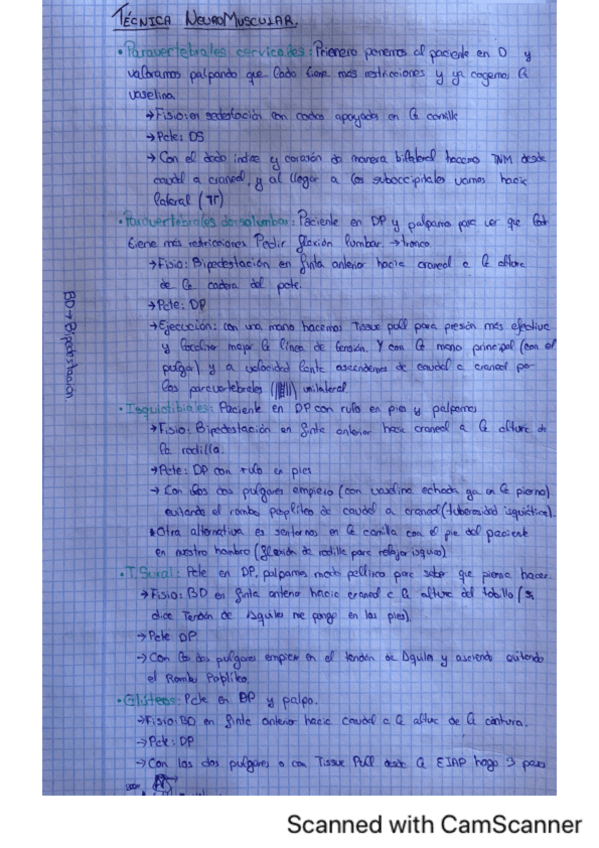 TÉCNICA NEUROMUSCULAR.
• Paravertebrales cervicales: Primero ponemos al paciente en D y
valoramos palpando que lado tiene más restricciones y ya cogemos la
vaselina
→ Fisio: en sedestación con codos apoyada en la camilla
→ Pcte: DS
→ Con el dedo indice y corazón de manera bilateral hacemos TNM desde
caudal a craneal, y al llegar a los suboccipitales vamos hacia
lateral
• Paravertebrales dorsolumbar: Paciente en DP y palpamos para ver que lado
tiene más restricciones Pedir flexión lumbar → tronco.
→ Fisio: Bipedestación en finta anterior hacia craneal a la altura
de la cadera del pcte.
→ Pcte: DP
→ Ejecución: con una mano hacemos Tissue pull para presión más efectiva
y localizar mejor la línea de tensión. Y con la mano principal (con el
pulgar) y a velocidad lenta ascendemos de caudal a craneal por
los paravertebrales unilateral.
• Isquiotibiales: Paciente en DP con rulo en pies y palpamos
→ Fisio: Bipedestación en finta anterior hacia craneal a la altura de
la rodilla.
→ Pcte: DP con rulo en pies
→ Con los dos pulgares empiezo (con vaselina echada ya en la pierna)
evitando el rombo popliteo de caudal a craneal (tuberosidad isquiática).
* Otra alternativa es sentarnos en la camilla con el pie del paciente
en nuestro hombro (flexión de rodilla para relajar isquios)
• T. Sural: Pcte en DP, palpamos para saber que pierna hacer.
→ Fisio: BD en finta anterior hacia craneal a la altura del tobillo (si
dice Tendón de Aquiles me pongo en los pies).
→ Pcte DP
→ Con los dos pulgares empiezo en el tendón de Aquiles y asciendo evitando
el Rombo Popliteo.
• Glúteos: Pcte en DP y palpo.
→ Fisio: BD en finta anterior hacia caudal a la altura de la cintura.
→ Pcte: DP
→ Con los dos pulgares o con Tissue Pull desde la EIAP hago 3
BD → Bipedestación.
Scanned with CamScanner